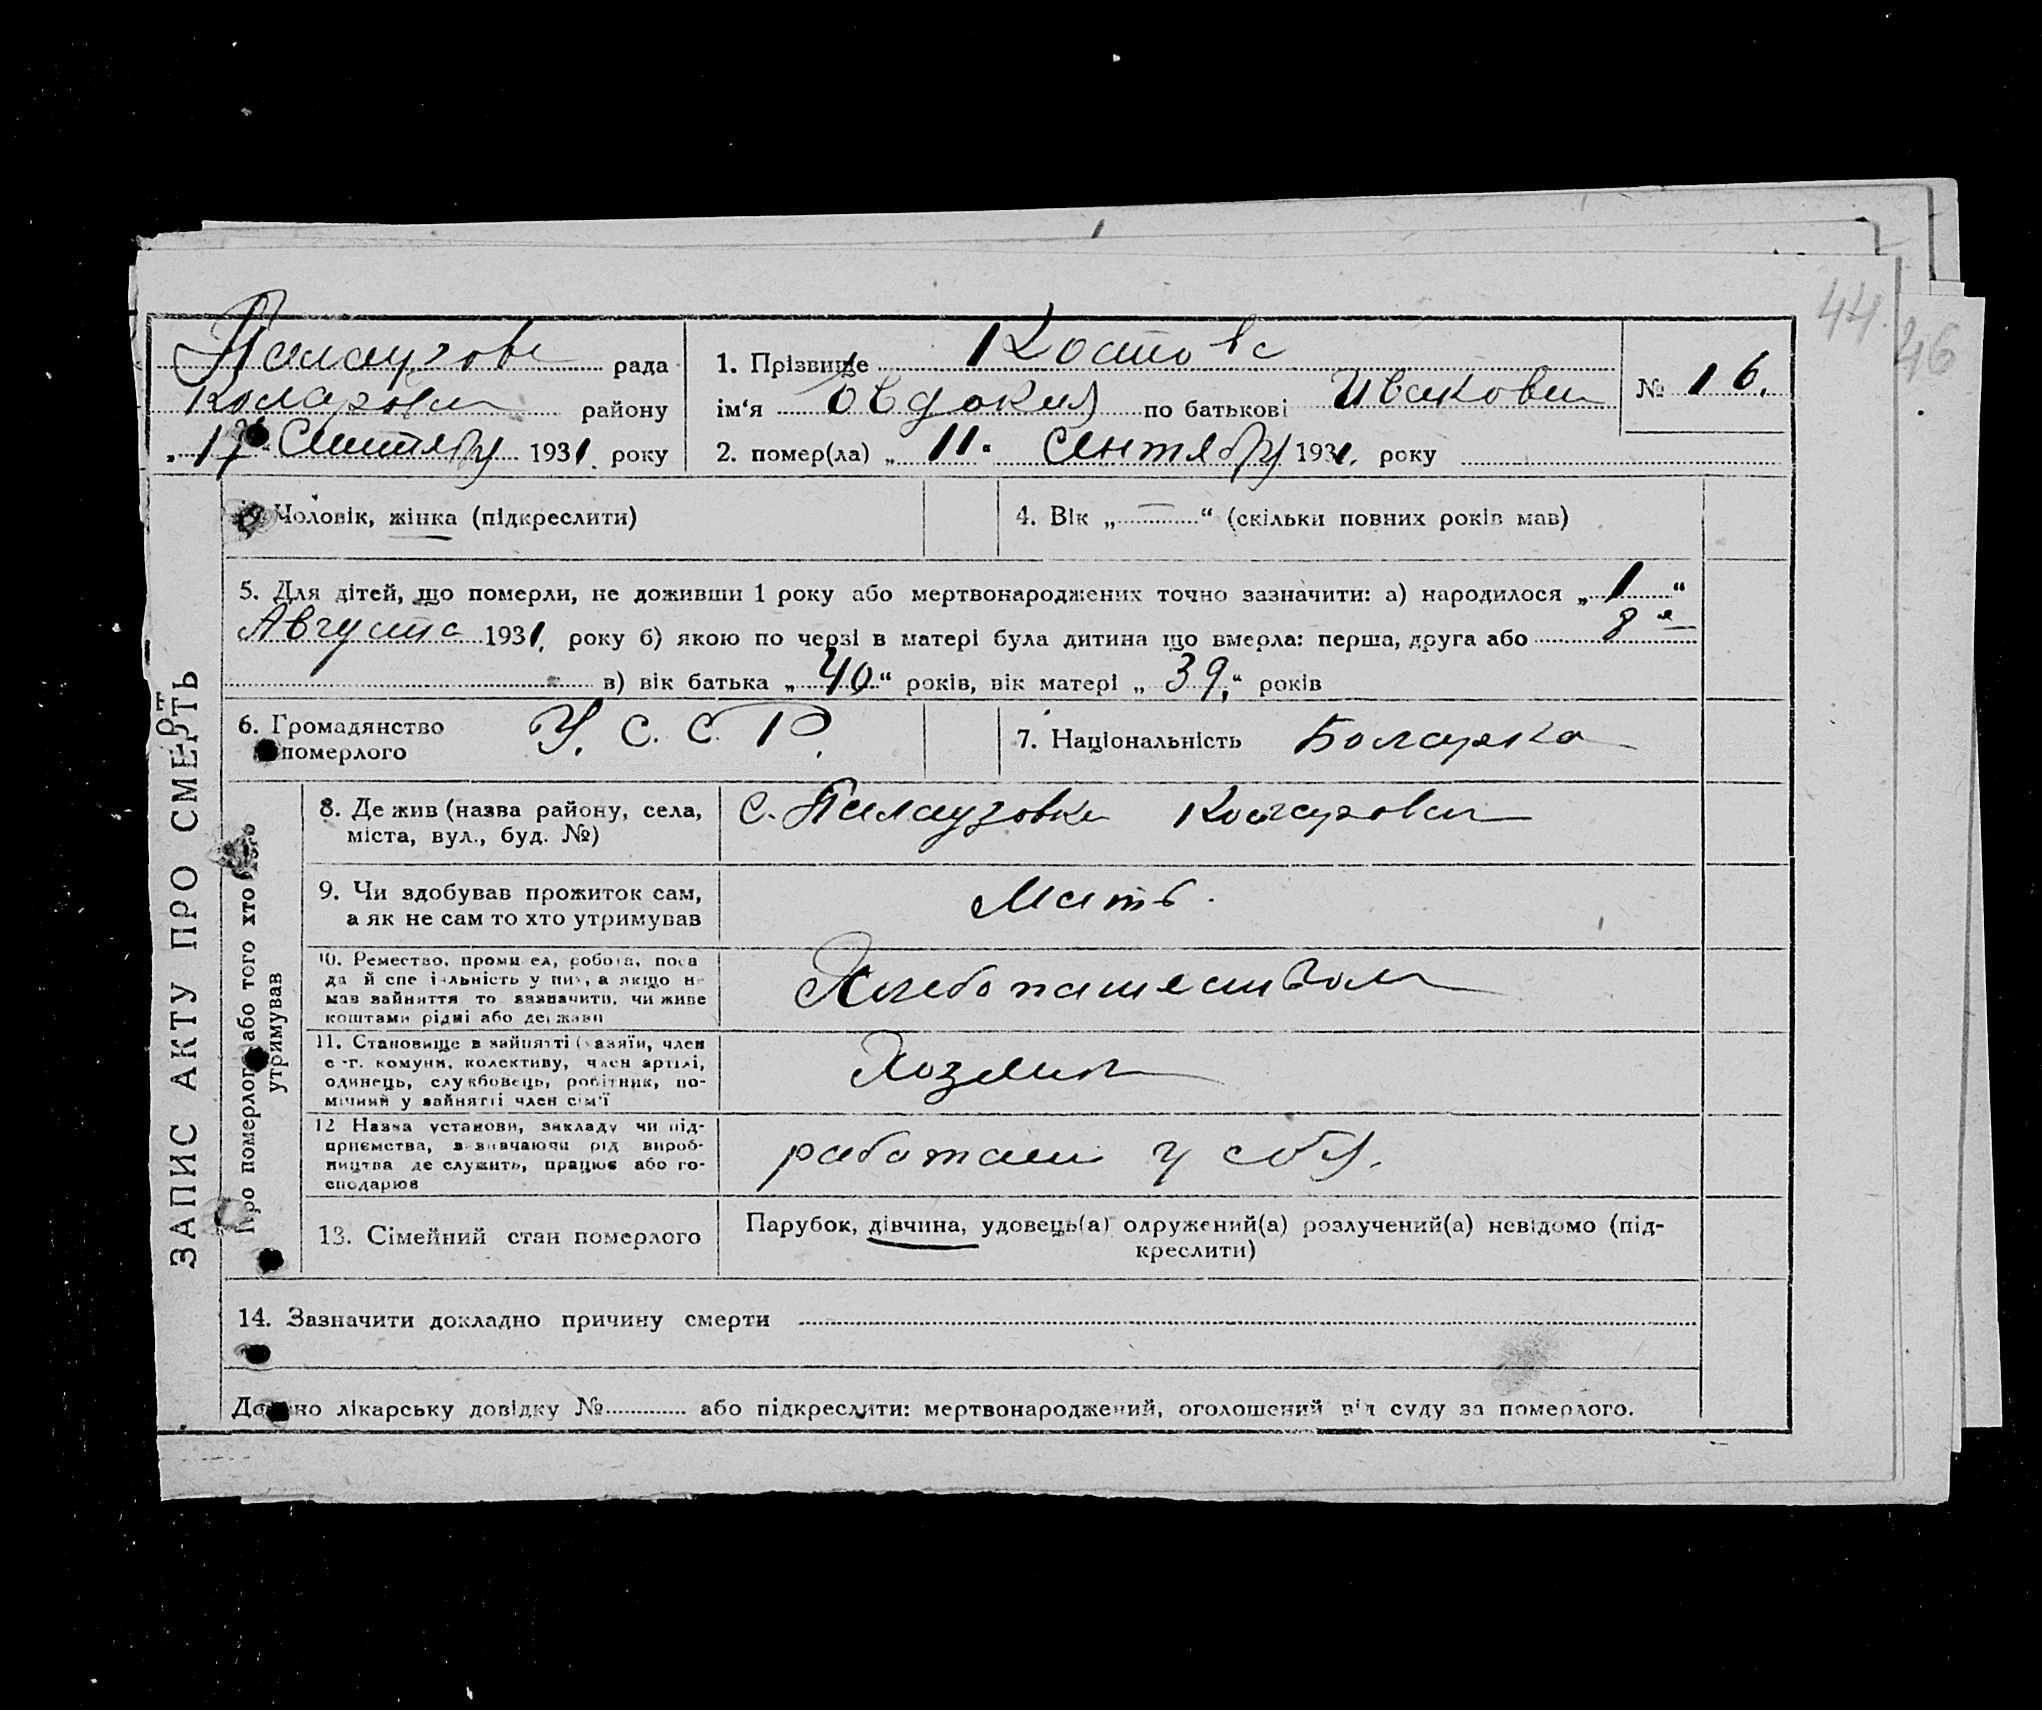 44.
46
Палаузове рада
Коларовск району
"17" Сентября 1931. року
1. Прізвище Костова
ім'я Овдокия по батькові Ивановна
№ 16.
2. помер(ла) „ 11 " Сентября 1931. року
ЗАПИС АКТУ ПРО СМЕРТЬ
Чоловік, жінка (підкреслити)
4. Вік „ — “ (скільки повних років мав)
5. Для дітей, що померли, не доживши 1 року або мертвонароджених точно зазначити: а) народилося „ 1 “
Августа 1931. року б) якою по черзі в матері була дитина що вмерла: перша, друга або 8 я
в) вік батька „ 40 “ років, вік матері „ 39, “ років
6. Громадянство померлого У. С. С. Р.
7. Національність Болгарка
Про померлого або того хто
утримував
8. Де жив (назва району, села,
міста, вул., буд. №)
с. Палаузовка Коларовск
9. Чи здобував прожиток сам,
а як не сам то хто утримував
Мать.
10. Ремество, промисел, робота, поса
да й спеціяльність у них, а якщо не
мав зайняття то зазначити, чи живе
коштами рідні або держави
Хлебопашеством
11. Становище в зайнятті (хазяїн, член
с.-г. комуни, колективу, член артілі,
одинець, службовець, робітник, по-
мічний у зайнятті член сім'ї
Хозяин
12 Назва установи, закладу чи під-
приємства, визначаючи рід вироб-
ництва де служить, працює або го-
сподарює
работали у себя.
13. Сімейний стан померлого
Парубок, дівчина, удовець(а) одружений(а) розлучений(а) невідомо (під-
креслити)
14. Зазначити докладно причину смерти
Додано лікарську довідку № або підкреслити: мертвонароджений, оголошений від суду за померлого.